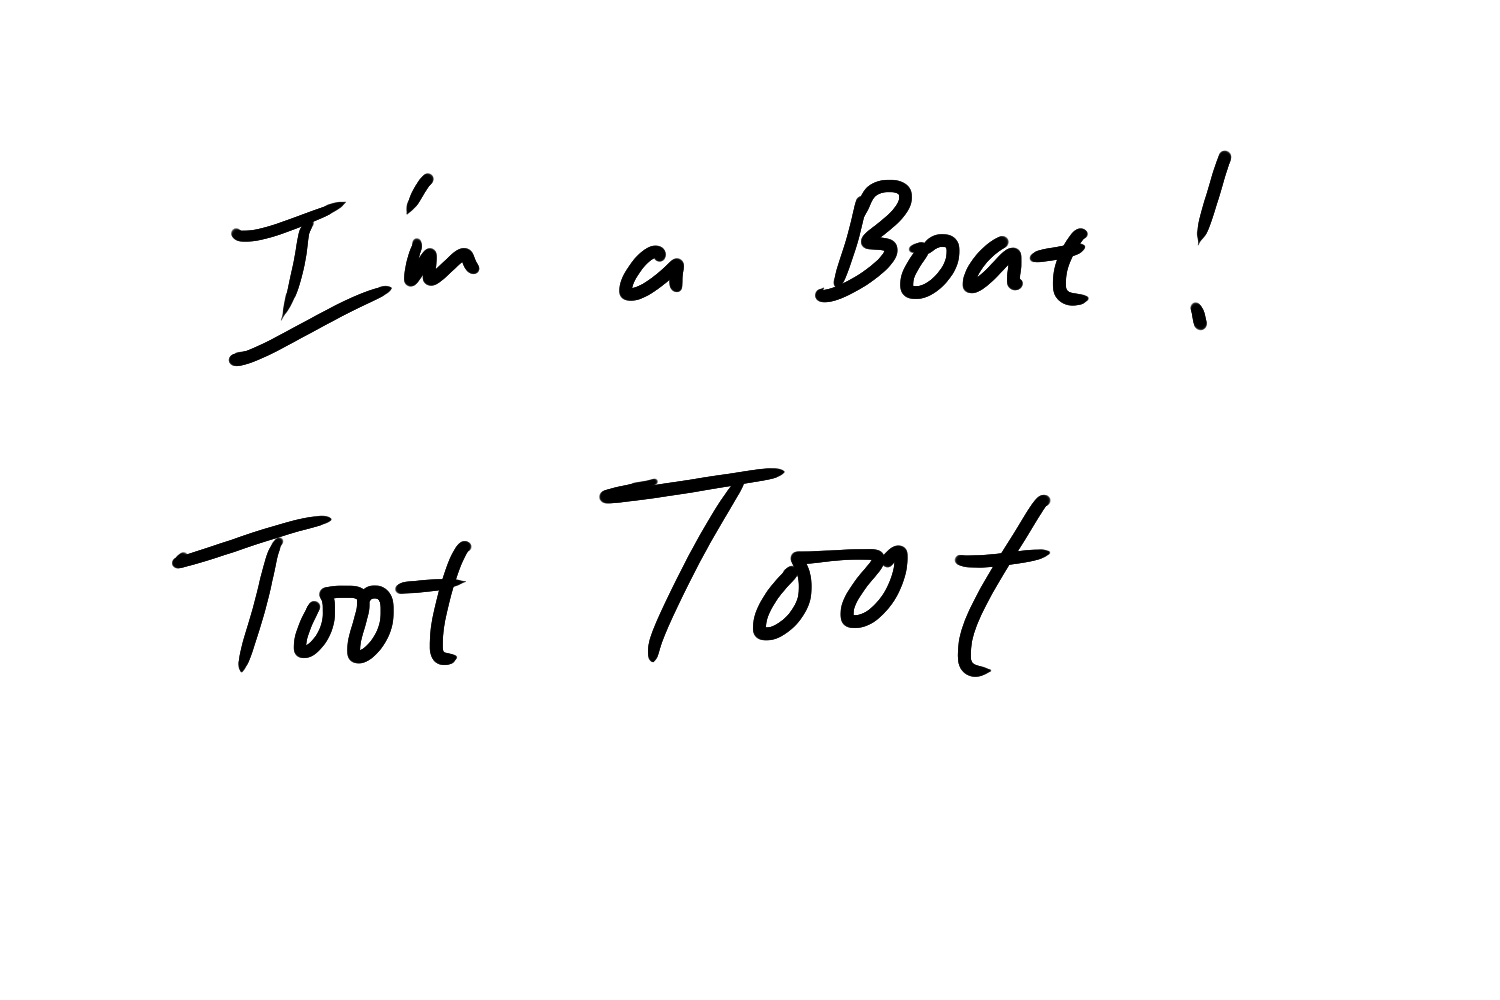 I'm a Boat!
Toot Toot